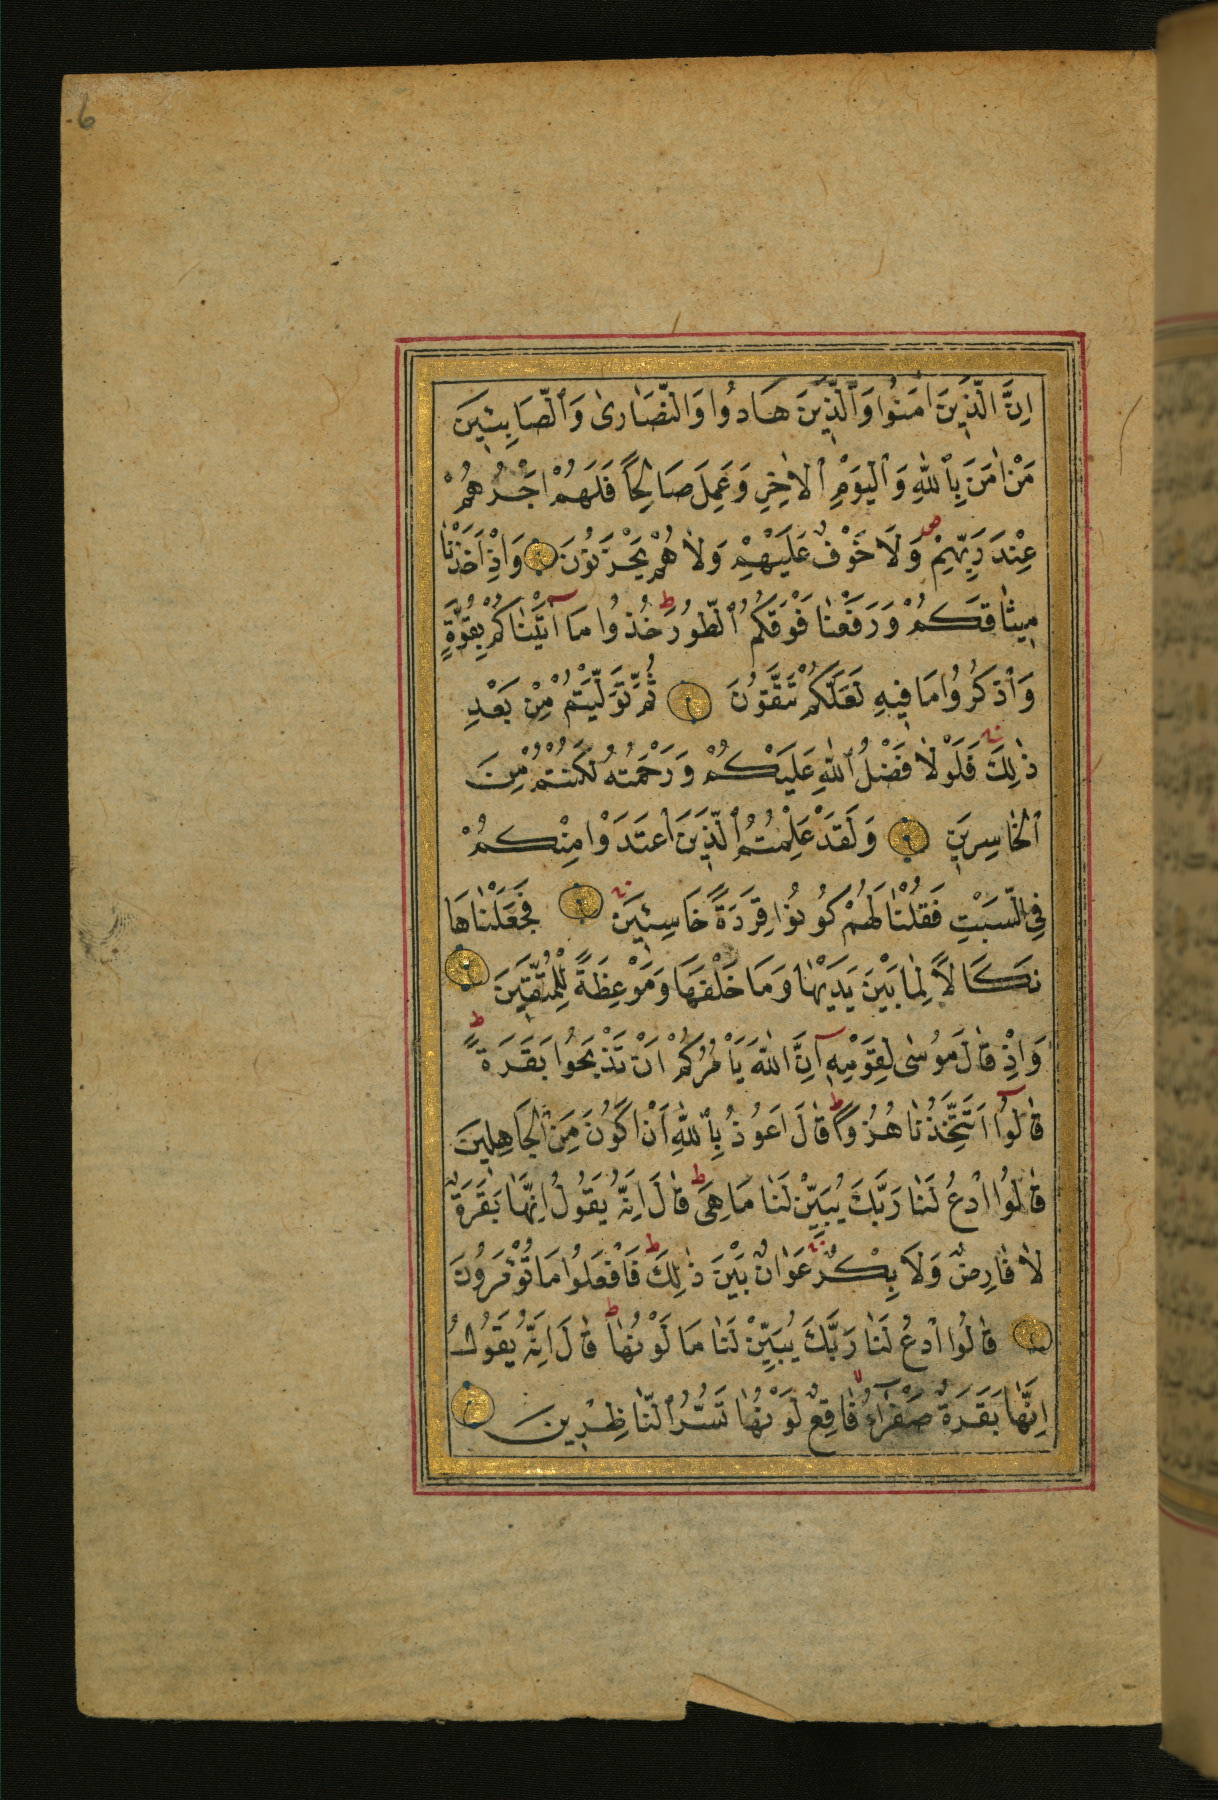 6
اِنَّ الَّذِينَ اٰمَنُوا وَالَّذِينَ هَادُوا وَالنَّصَارٰى وَالصَّابِئِينَ
مَنْ اٰمَنَ بِاللّٰهِ وَالْيَوْمِ الْاٰخِرِ وَعَمِلَ صَالِحًا فَلَهُمْ اَجْرُهُمْ
عِنْدَ رَبِّهِمْ وَلَا خَوْفٌ عَلَيْهِمْ وَلَا هُمْ يَحْزَنُونَ وَاِذْ اَخَذْنَا
مِيثَاقَكُمْ وَرَفَعْنَا فَوْقَكُمُ الطُّورَ ط خُذُوا مَا آتَيْنَاكُمْ بِقُوَّةٍ
وَاذْكُرُوا مَا فِيهِ لَعَلَّكُمْ تَتَّقُونَ ثُمَّ تَوَلَّيْتُمْ مِنْ بَعْدِ
ذٰلِكَ فَلَوْلَا فَضْلُ اللّٰهِ عَلَيْكُمْ وَرَحْمَتُهُ لَكُنْتُمْ مِنَ
الْخَاسِرِينَ وَلَقَدْ عَلِمْتُمُ الَّذِينَ اعْتَدَوْا مِنْكُمْ
فِي السَّبْتِ فَقُلْنَا لَهُمْ كُونُوا قِرَدَةً خَاسِئِينَ فَجَعَلْنَاهَا
نَكَالًا لِمَا بَيْنَ يَدَيْهَا وَمَا خَلْفَهَا وَمَوْعِظَةً لِلْمُتَّقِينَ
وَاِذْ قَالَ مُوسٰى لِقَوْمِهِ اِنَّ اللّٰهَ يَأْمُرُكُمْ اَنْ تَذْبَحُوا بَقَرَةً ط
قَالُوا اَتَتَّخِذُنَا هُزُوًا ط قَالَ اَعُوذُ بِاللّٰهِ اَنْ اَكُونَ مِنَ الْجَاهِلِينَ
قَالُوا ادْعُ لَنَا رَبَّكَ يُبَيِّنْ لَنَا مَا هِىَ ط قَالَ اِنَّهُ يَقُولُ اِنَّهَا بَقَرَةٌ
لَا فَارِضٌ وَلَا بِكْرٌ عَوَانٌ بَيْنَ ذٰلِكَ ط فَافْعَلُوا مَا تُؤْمَرُونَ
قَالُوا ادْعُ لَنَا رَبَّكَ يُبَيِّنْ لَنَا مَا لَوْنُهَا ط قَالَ اِنَّهُ يَقُولُ
اِنَّهَا بَقَرَةٌ صَفْرَآءُ فَاقِعٌ لَوْنُهَا تَسُرُّ النَّاظِرِينَ